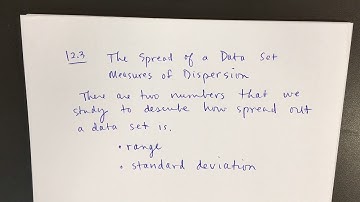 12.3 The Spread of a Data Set
Measures of Dispersion
There are two numbers that we
study to describe how spread out
a data set is.
• range
• standard deviation